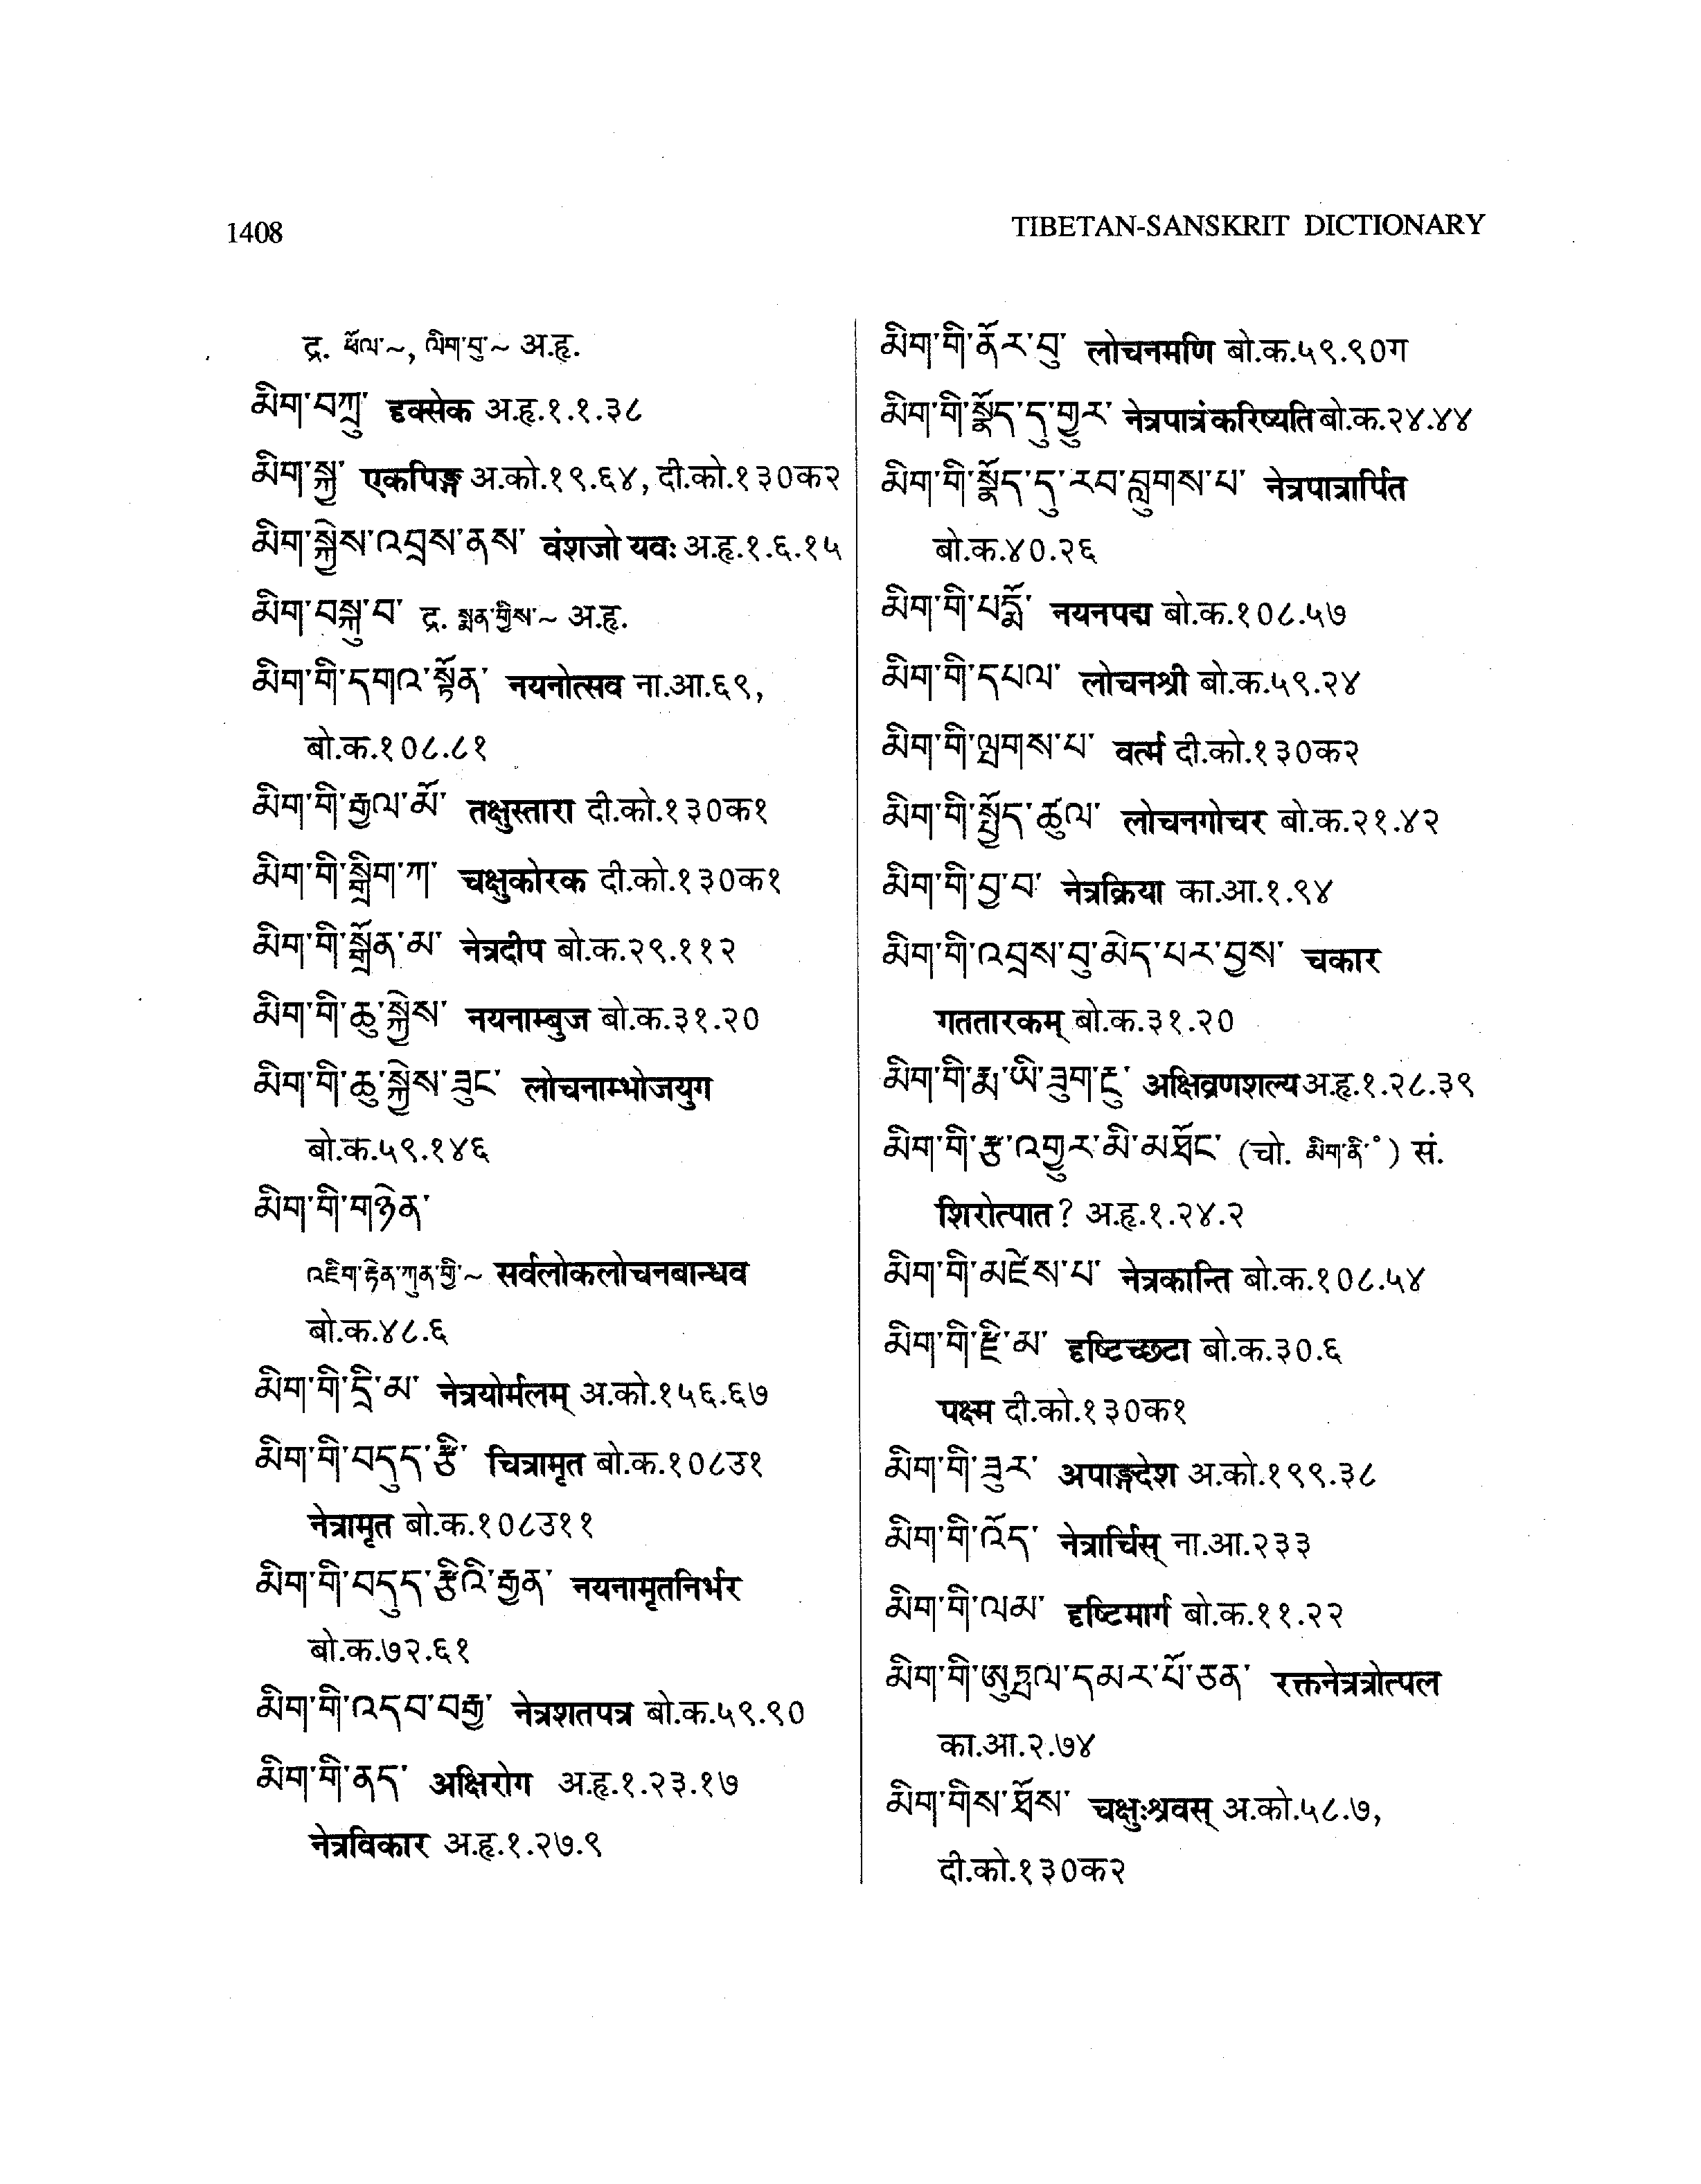 1408
TIBETAN-SANSKRIT DICTIONARY
द्र. ཕོལ་~, ལིག་བུ་~ अ.हृ.
མིག་བཀྲུ་ दृक्सेक अ.हृ.१.१.३८
མིག་སྐྱ་ एकपिङ्ग अ.को.१९.६४, दी.को.१३०क२
མིག་སྐྱེས་འབྲས་ནས་ वंशजो यवः अ.हृ.१.६.१५
མིག་བསྐུ་བ་ द्र. སྨན་གྱིས་~ अ.हृ.
མིག་གི་དགའ་སྟོན་ नयनोत्सव ना.आ.६९,
बो.क.१०८.८१
མིག་གི་རྒྱལ་མོ་ तक्षुस्तारा दी.को.१३०क१
མིག་གི་སྒྲིག་ཀ་ चक्षुकोरक दी.को.१३०क१
མིག་གི་སྒྲོན་མ་ नेत्रदीप बो.क.२९.११२
མིག་གི་ཆུ་སྐྱེས་ नयनाम्बुज बो.क.३१.२०
མིག་གི་ཆུ་སྐྱེས་ཟུང་ लोचनाम्भोजयुग
बो.क.५९.१४६
མིག་གི་གཉེན་
འཇིག་རྟེན་ཀུན་གྱི་~ सर्वलोकलोचनबान्धव
बो.क.४८.६
མིག་གི་དྲི་མ་ नेत्रयोर्मलम् अ.को.१५६.६७
མིག་གི་བདུད་རྩི་ चित्रामृत बो.क.१०८उ१
नेत्रामृत बो.क.१०८उ११
མིག་གི་བདུད་རྩིའི་རྒྱན་ नयनामृतनिर्भर
बो.क.७२.६१
མིག་གི་འདབ་བརྒྱ་ नेत्रशतपत्र बो.क.५९.९०
མིག་གི་ནད་ अक्षिरोग अ.हृ.१.२३.१७
नेत्रविकार अ.हृ.१.२७.९
མིག་གི་ནོར་བུ་ लोचनमणि बो.क.५९.९०ग
མིག་གི་སྣོད་དུ་གྱུར་ नेत्रपात्रंकरिष्यति बो.क.२४.४४
མིག་གི་སྣོད་དུ་རབ་བླུགས་པ་ नेत्रपात्रार्पित
बो.क.४०.२६
མིག་གི་པདྨོ་ नयनपद्म बो.क.१०८.५७
མིག་གི་དཔལ་ लोचनश्री बो.क.५९.२४
མིག་གི་ལྤགས་པ་ वर्त्म दी.को.१३०क२
མིག་གི་སྤྱོད་ཚུལ་ लोचनगोचर बो.क.२१.४२
མིག་གི་བྱ་བ་ नेत्रक्रिया का.आ.१.९४
མིག་གི་འབྲས་བུ་མེད་པར་བྱས་ चकार
गततारकम् बो.क.३१.२०
མིག་གི་རྨ་ཡི་ཟུག་རྔུ་ अक्षिव्रणशल्य अ.हृ.१.२८.३९
མིག་གི་རྩ་འགྱུར་མི་མཐོང་ (चो. མིག་ནི་°) सं.
शिरोत्पात? अ.हृ.१.२४.२
མིག་གི་མཛེས་པ་ नेत्रकान्ति बो.क.१०८.५४
མིག་གི་རྫི་མ་ दृष्टिच्छटा बो.क.३०.६
पक्ष्म दी.को.१३०क१
མིག་གི་ཟུར་ अपाङ्गदेश अ.को.१९९.३८
མིག་གི་འོད་ नेत्रार्चिस् ना.आ.२३३
མིག་གི་ལམ་ दृष्टिमार्ग बो.क.११.२२
མིག་གི་ཨུཏྤལ་དམར་པོ་ཅན་ रक्तनेत्रत्रोत्पल
का.आ.२.७४
མིག་གིས་ཐོས་ चक्षुःश्रवस् अ.को.५८.७,
दी.को.१३०क२